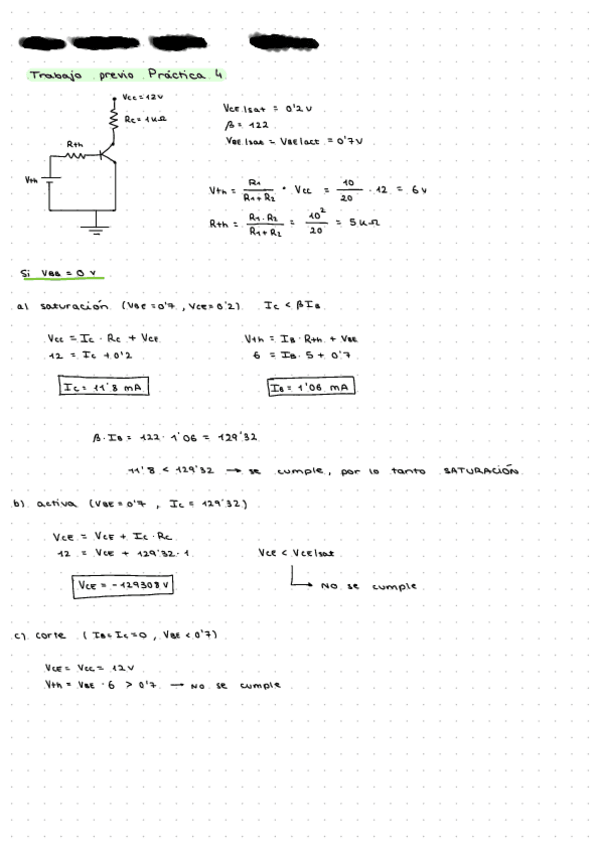 Trabajo previo Práctica 4
Vcc = 12V
Rc = 1kΩ
Rth
Vth
VCE|sat = 0'2 V
β = 122
VBE|sat = VBE|act = 0'7V
Vth = R1 / (R1+R2) · Vcc = 10 / 20 · 12 = 6 V
Rth = R1·R2 / (R1+R2) = 10² / 20 = 5kΩ
Si VBB = 0 V
a) saturación (VBE = 0'7, VCE = 0'2) Ic < βIB
Vcc = Ic · Rc + VCE
12 = Ic + 0'2
Ic = 11'8 mA
Vth = IB · Rth + VBE
6 = IB · 5 + 0'7
IB = 1'06 mA
β·IB = 122 · 1'06 = 129'32
11'8 < 129'32 → se cumple, por lo tanto SATURACIÓN
b) activa (VBE = 0'7, Ic = 129'32)
VCE = VCE + Ic·Rc
12 = VCE + 129'32·1
VCE = -129308 V
VCE < VCE|sat
No se cumple
c) corte (IB = Ic = 0, VBE < 0'7)
VCE = Vcc = 12V
Vth = VBE · 6 > 0'7 → No se cumple